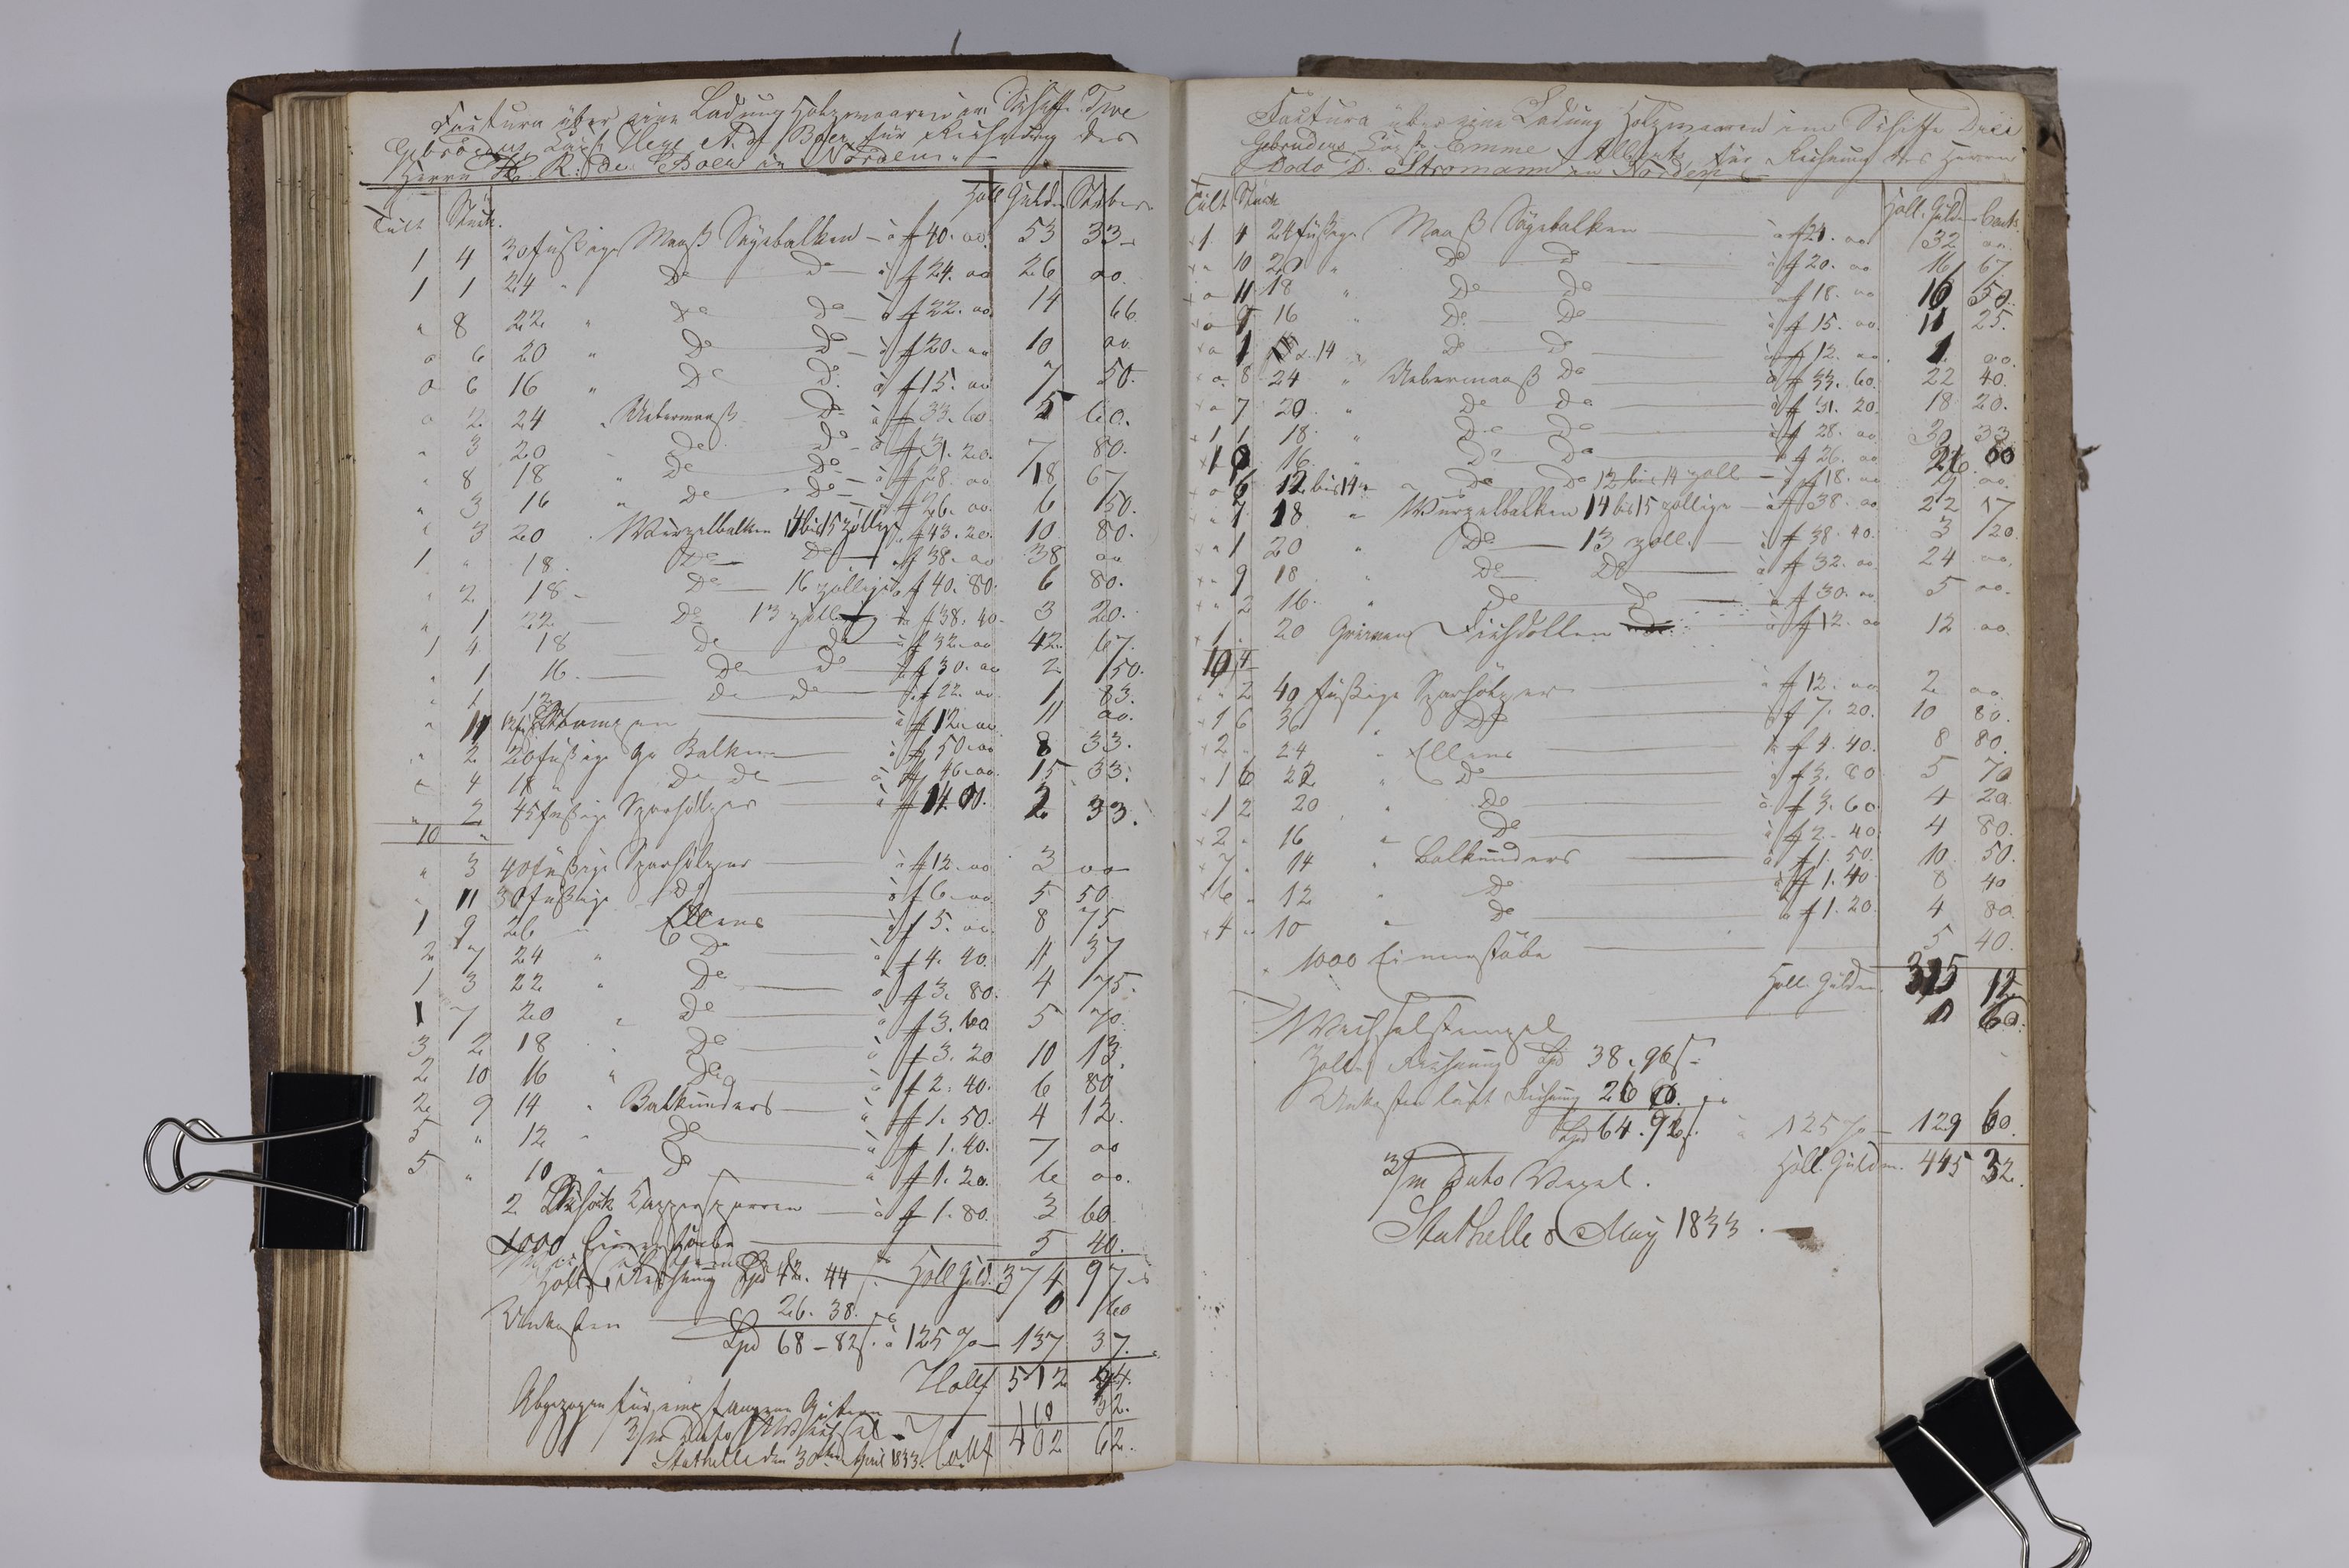 Factura über eine Ladung Holzwaaren im Schiffe Twe
Gebröders, Capt. N. de Boer für Rechnung des
Herrn R. de Boer in Norden
Tult Stück. Holl Gulden Stüber
1 4 30 füßige Maaß Sägebalken - à f 40. oo 53 33
1 1 24 " Do Do à f 24. oo 26 oo.
" 8 22 " Do Do à f 22. oo 14 66
o 6 20 " Do Do à f 20. oo 10 oo
o 6 16 " Do Do à f 15. oo 7 50.
o 2 24 " Uebermaaß Do à f 33. 60 5 60.
" 3 20 " Do Do à f 31. 20. 7 80.
" 8 18 " Do Do à f 28. oo 18 67
" 3 16 " Do Do à f 26. oo. 6 50.
" 3 20 . Würzelbalken 14 bis 15 zöllige f 43. 20. 10 80.
1 " 18. Do Do f 38. oo 38 oo
" 2 18 - Do 16 zöllige f 40. 80. 6 80.
" 1 22 Do 13 zöllig à f 38. 40. 3 20.
1 4 18 Do Do à f 32. oo 42 67.
" 1 16. Do Do à f 30. oo 2 50.
" 1 12 Do Do à f 22. oo. 1 83.
" 11 à f 12. oo. 11 oo.
" 2 20 füßige Balken à f 50. oo 8 33.
" 4 18 " Do Do à f 46. oo. 15 33.
" 2 45 füßige Sparhölzer à f 14. 00. 2 33.
10 "
" 3 40 füßige Sparhölzer à f 12. oo 3 oo
" 11 30 füßige Do à f 6. oo. 5 50
1 9 26 " Ellens à f 5. oo. 8 75
2 7 24 " Do à f 4. 40. 11 37
1 3 22 " Do à f 3. 80. 4 75.
1 7 20 " Do à f 3. 60 5 70.
3 2 18 " Do à f 3. 20 10 13.
2 10 16 " Do à f 2. 40. 6 80
2 9 14 " Balkunders à f 1. 50. 4 12.
5 " 12 " Do à f 1. 40. 7 oo
5 " 10 " Do à f 1. 20. 6 oo.
2 Schock Sparren à f 1. 80. 3 60
1000 5 40.
Holl Guld. 374 97
Zoll Rechnung Spd 42. 44 0 60
Unkosten 26. 38.
Spd 68 - 82 ß. à 125 % 137 37.
Holl f 512 94.
Abgezogen für Gütern 110 32.
3/m dato Wechsel - Holl f 402 62.
Stathelle den 30ten April 1833.
Factura über eine Ladung Holzwaaren im Schiffe Drei
Gebruders Cap. Emme Alberts für Rechnung des Herrn
Dodo D. Stromann in Norden
Tult Stück Holl. Gulden Cents
1 4 24 füßige Maaß Sägebalken à f 24. oo 32 oo.
" 10 20 " Do Do à f 20. oo 16 67.
o 11 18 " Do Do à f 18. oo 16 50.
o 9 16 " Do Do à f 15. oo. 11 25.
o 1 14 " Do Do à f 12. oo. 1 oo.
o. 8 24 " Uebermaaß Do à f 33. 60. 22 40.
o 7 20 " Do Do à f 31. 20. 18 20.
1 1 18 " Do Do à f 28. oo 30 33
1 0 16 " Do Do à f 26. oo 26 00
o 6 12 bis 14 " Do Do 12 bis 14 zoll à f 18. oo 9 oo.
" 7 18 " Würzelbalken 14 bis 15 zöllige à f 38. oo 22 17
" 1 20 " Do 13 zoll. à f 38. 40. 3 20
" 9 18 " Do Do à f 32. oo 24 oo.
" 2 16. " Do Do à f 30. oo 5 oo.
1 - 20 Grienen à f 12. oo 12 oo.
10 4
" 2 40 füßige Sparhölzer à f 12. oo 2 oo
1 6 36 " Do à f 7. 20. 10 80.
2 " 24 " Ellens à f 4. 40. 8 80.
1 6 22 " Do à f 3. 80 5 70
1 2 20 " Do à f 3. 60 4 20.
2 " 16 " Do à f 2. 40 4 80.
7 " 14 " Balkunders à f 1. 50. 10 50.
6 " 12 " Do à f 1. 40 8 40
4 " 10 " Do à f 1. 20. 4 80.
1000 5 40.
Holl. Gulden. 315 12
Wechselstempel 0 60.
Zoll Rechnung Spd 38. 96 ß.
Unkosten laut Rechnung 26 00.
Spd 64. 96 ß. à 125 % 129 60.
3/m dato Holl. Gulden. 445 32.
Stathelle 8 May 1833.